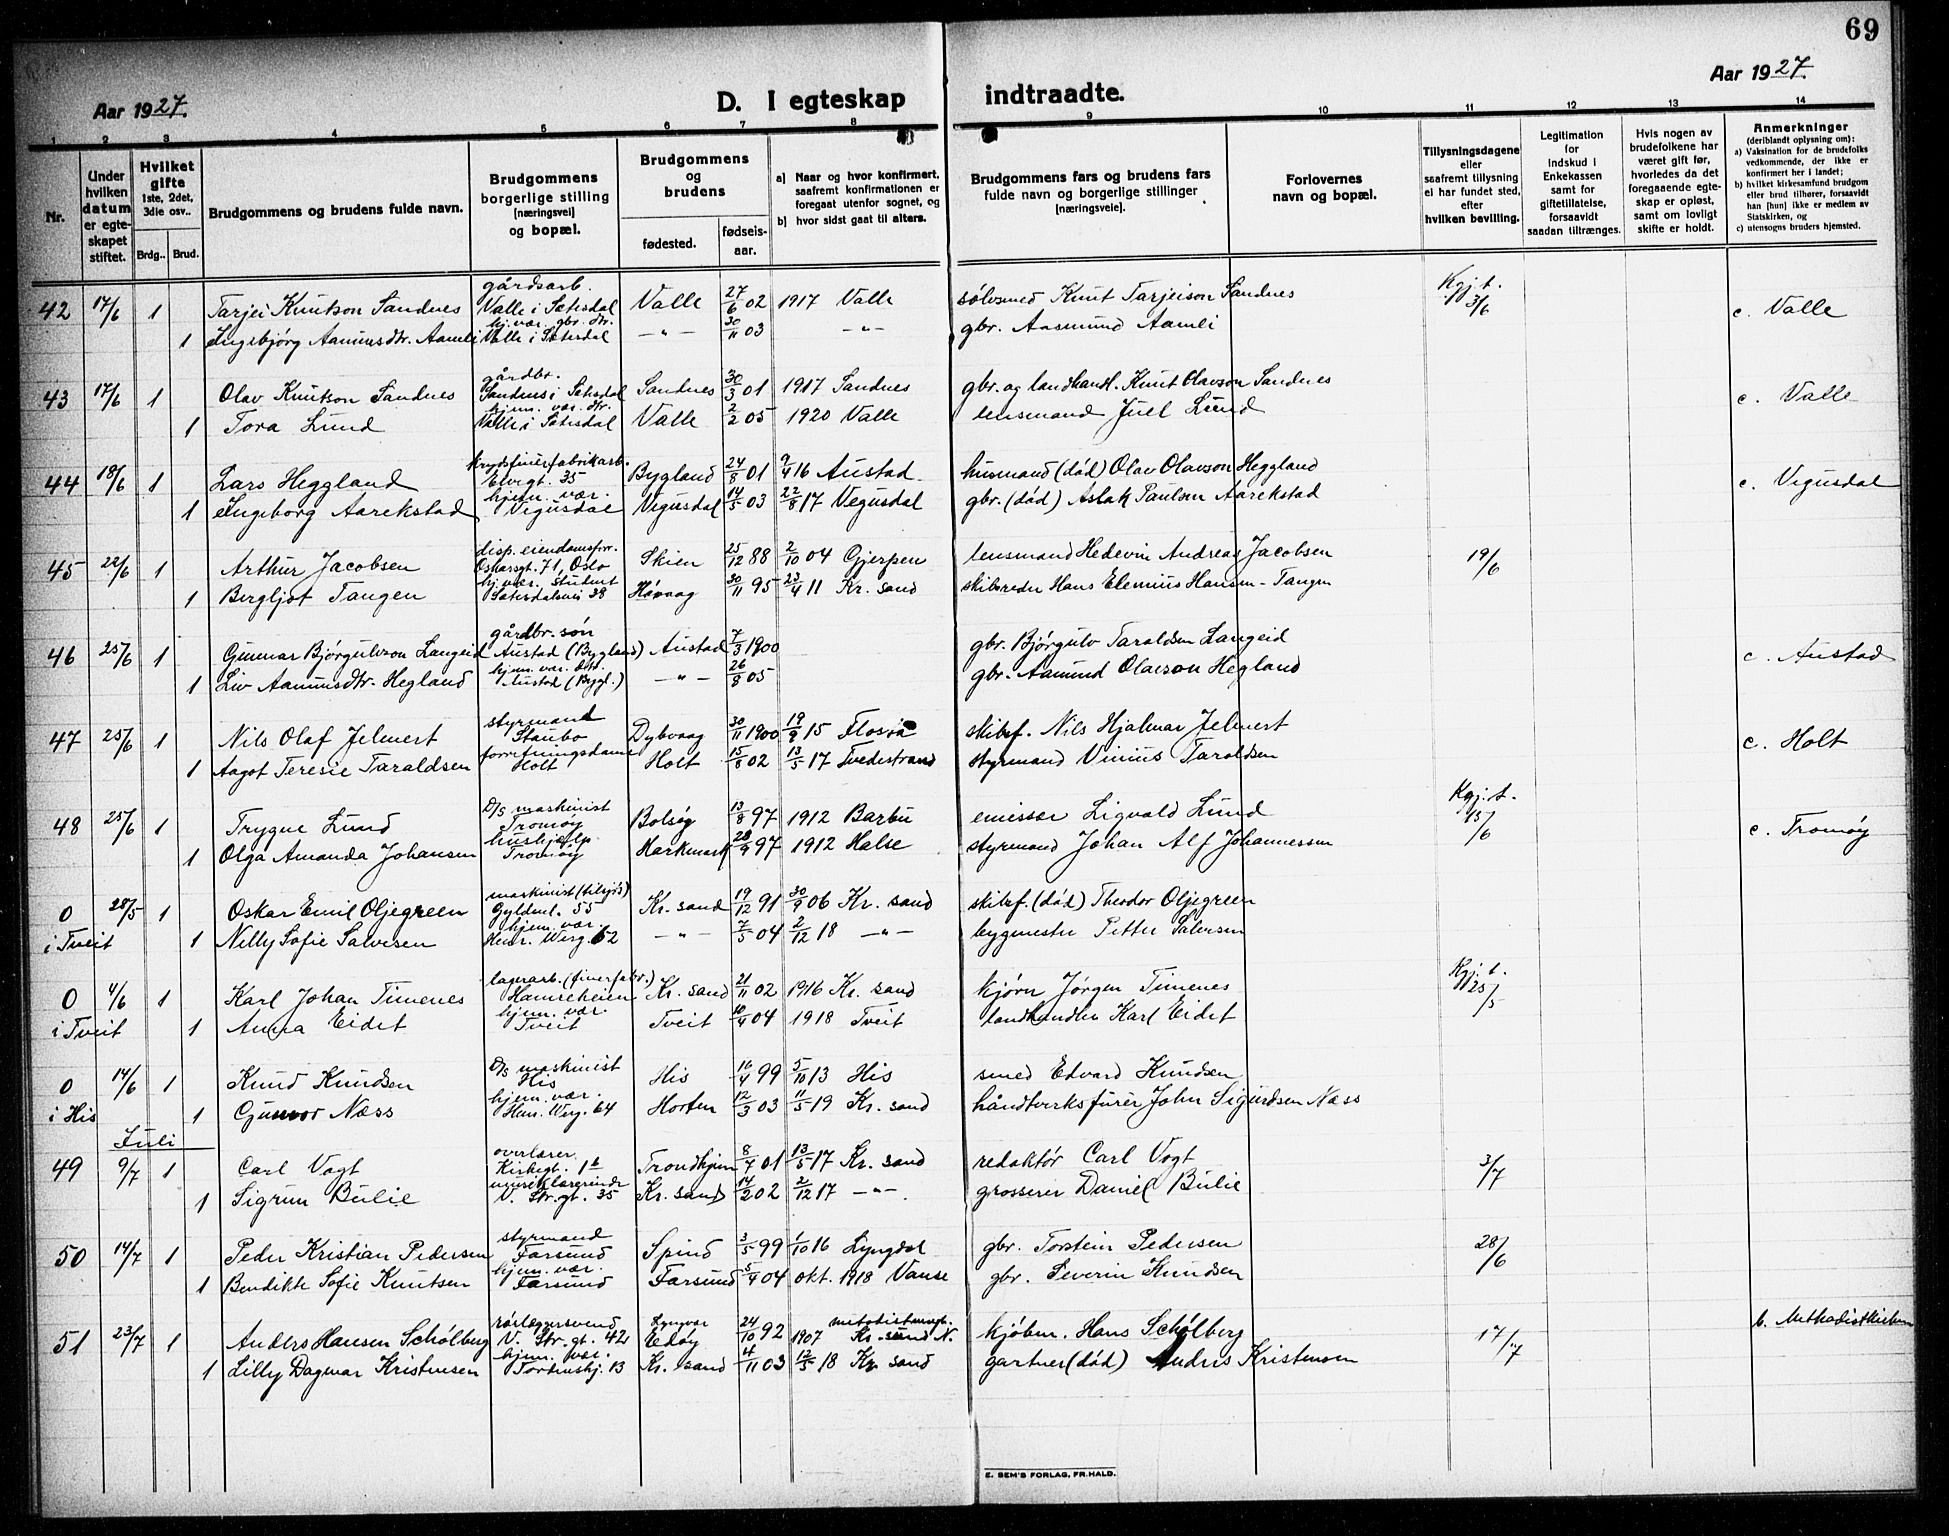 69
Aar 1927.
D. I egteskap indtraadte.
Aar 1927.
1 2 3 4 5 6 7 8 9 10 11 12 13 14
Nr.
Under hvilken datum er egteskapet stiftet.
Hvilket gifte 1ste, 2det, 3die osv..
Brdg.. Brud.
Brudgommens og brudens fulde navn.
Brudgommens borgerlige stilling [næringsvei] og bopæl.
Brudgommens og brudens
fødested.
fødsels-aar.
a) Naar og hvor konfirmert, saafremt konfirmationen er foregaat utenfor sognet, og
b) hvor sidst gaat til alters.
Brudgommens fars og brudens fars fulde navn og borgerlige stillinger [næringsveie].
Forlovernes navn og bopæl.
Tillysningsdagene eller saafremt tillysning ei har fundet sted, efter hvilken bevilling.
Legitimation for indskud i Enkekassen samt for giftetillatelse, forsaavidt saadan tiltrænges.
Hvis nogen av brudefolkene har været gift før, hvorledes da det foregaaende egteskap er opløst, samt om lovligt skifte er holdt.
Anmerkninger (deriblandt oplysning om):
a) Vaksination for de brudefolks vedkommende, der ikke er konfirmert her i landet;
b) hvilket kirkesamfund brudgom eller brud tilhører, forsaavidt han [hun] ikke er medlem av Statskirken, og
c) utensogns bruders hjemsted.
42 17/6 1 Tarjei Knutson Sandnes gårdsarb. Valle i Sætesdal Valle 27/6 02 1917 Valle sølvsmed Knut Tarjeison Sandnes Kgj.t. 3/6 c. Valle
1 Ingebjørg Aamundsdtr. Aamli hj.vær. gbr. dtr. Valle i Sætesdal —"— 30/11 03 —"— gbr. Aasmund Aamli
43 17/6 1 Olav Knutson Sandnes gårdbr. Sandnes i Sætesdal Sandnes 30/3 01 1917 Sandnes gbr. og landhandl. Knut Olavson Sandnes c. Valle
1 Tora Lund hjem. vær. dtr. Valle i Sætesdal Valle 2/2 05 1920 Valle lensmand Juel Lund
44 18/6 1 Lars Heggland krydsfinérfabrikarb. Elvegt. 35 Bygland 24/8 01 9/4 16 Austad husmand (død) Olav Olavson Heggland c. Vegusdal
1 Ingeborg Aarekstad hjem. vær. Vegusdal Vegusdal 14/5 03 22/8 17 Vegusdal gbr. (død) Aslak Paulsen Aarekstad
45 22/6 1 Arthur Jacobsen disp. eiendomsforr. Oskarsgt. 71, Oslo Skien 25/12 88 2/10 04 Gjerpen lensmand Hedevin Andreas Jacobsen 19/6
1 Bergljot Tangen hj.vær. student Sætesdalsvei 38 Høvaag 30/11 95 23/4 11 Kr. sand skibsreder Hans Elenius Hansen-Tangen
46 25/6 1 Gunnar Bjørgulvson Langeid gårdbr. søn Austad (Bygland) Austad 7/3 1900 gbr. Bjørgulv Taraldsen Langeid c. Austad
1 Liv Aamundsdtr. Hegland hjem. vær. dtr. Austad (Bygl.) —"— 26/8 05 gbr. Aamund Olavson Hegland
47 25/6 1 Nils Olaf Jelmert styrmand Staubo Dybvaag 30/11 1900 19/9 15 Flosta skibsf. Nils Hjalmar Jelmert c. Holt
1 Aagot Teresie Taraldsen forretningsdame Holt Holt 15/8 02 13/5 17 Tvedestrand styrmand Vinius Taraldsen
48 25/6 1 Trygve Lund D/S maskinist Tromøy Bolsøy 13/8 97 1912 Barbu emissær Sigvald Lund Kgj.t. 15/6 c. Tromøy
1 Olga Amanda Johansen hushjelp Tromøy Harkmark 28/9 97 1912 Halse styrmand Johan Alf Johannessen
0 i Tveit 28/5 1 Oskar Emil Oljegreen maskinist (tilsjøs) Gyldenl. 55 Kr. sand 19/12 91 30/9 06 Kr. sand skibsf. (død) Theodor Oljegreen
1 Nelly Sofie Salvesen hjem. vær. Henr. Werg. 62 —"— 7/5 04 2/12 18 —"— bygmester Petter Salvesen
0 i Tveit 4/6 1 Karl Johan Timenes lagerarb. (finerfabr.) Hamreheien Kr. sand 21/11 02 1916 Kr. sand kjørn Jørgen Timenes Kgj.t. 25/5
1 Anna Eidet hjem. vær. Tveit Tveit 10/4 04 1918 Tveit landhandler Karl Eidet
0 i His 14/6 1 Knud Knudsen D/S maskinist His His 16/4 99 5/10 13 His smed Edvard Knudsen
1 Gunvor Næss hjem. vær. Hen. Werg. 64 Horten 12/3 03 11/5 19 Kr. sand håndtverksfurer John Sigurdsen Næss
Juli
49 9/7 1 Carl Vogt overlærer Kirkegt. 1b Trondhjem 8/7 01 13/5 17 Kr. sand redaktør Carl Vogt 3/7
1 Sigrun Bulie musiklærerinde V. Str. gt. 35 Kr. sand 14/2 02 2/12 17 —"— grosserer Daniel Bulie
50 14/7 1 Peder Kristian Pedersen styrmand Farsund Spind 3/5 99 1/10 16 Lyngdal gbr. Torstein Pedersen 28/6
1 Bendikte Sofie Knutsen hjem. vær. Farsund Farsund 5/4 04 okt. 1918 Vanse gbr. Severin Knudsen
51 23/7 1 Anders Hansen Schølberg rørlæggersvend V. Str. gt. 42 Edøy 24/10 92 1907 Kr. sund N. kjøbm. Hans Schølberg 17/7 b. Methodistkirken
1 Lilly Dagmar Kristensen hjem. vær. Tordenskj. 13 Kr. sand 4/11 03 12/5 18 Kr. sand gartner (død) Anders Kristensen
E. SEM'S FORLAG, FR.HALD.